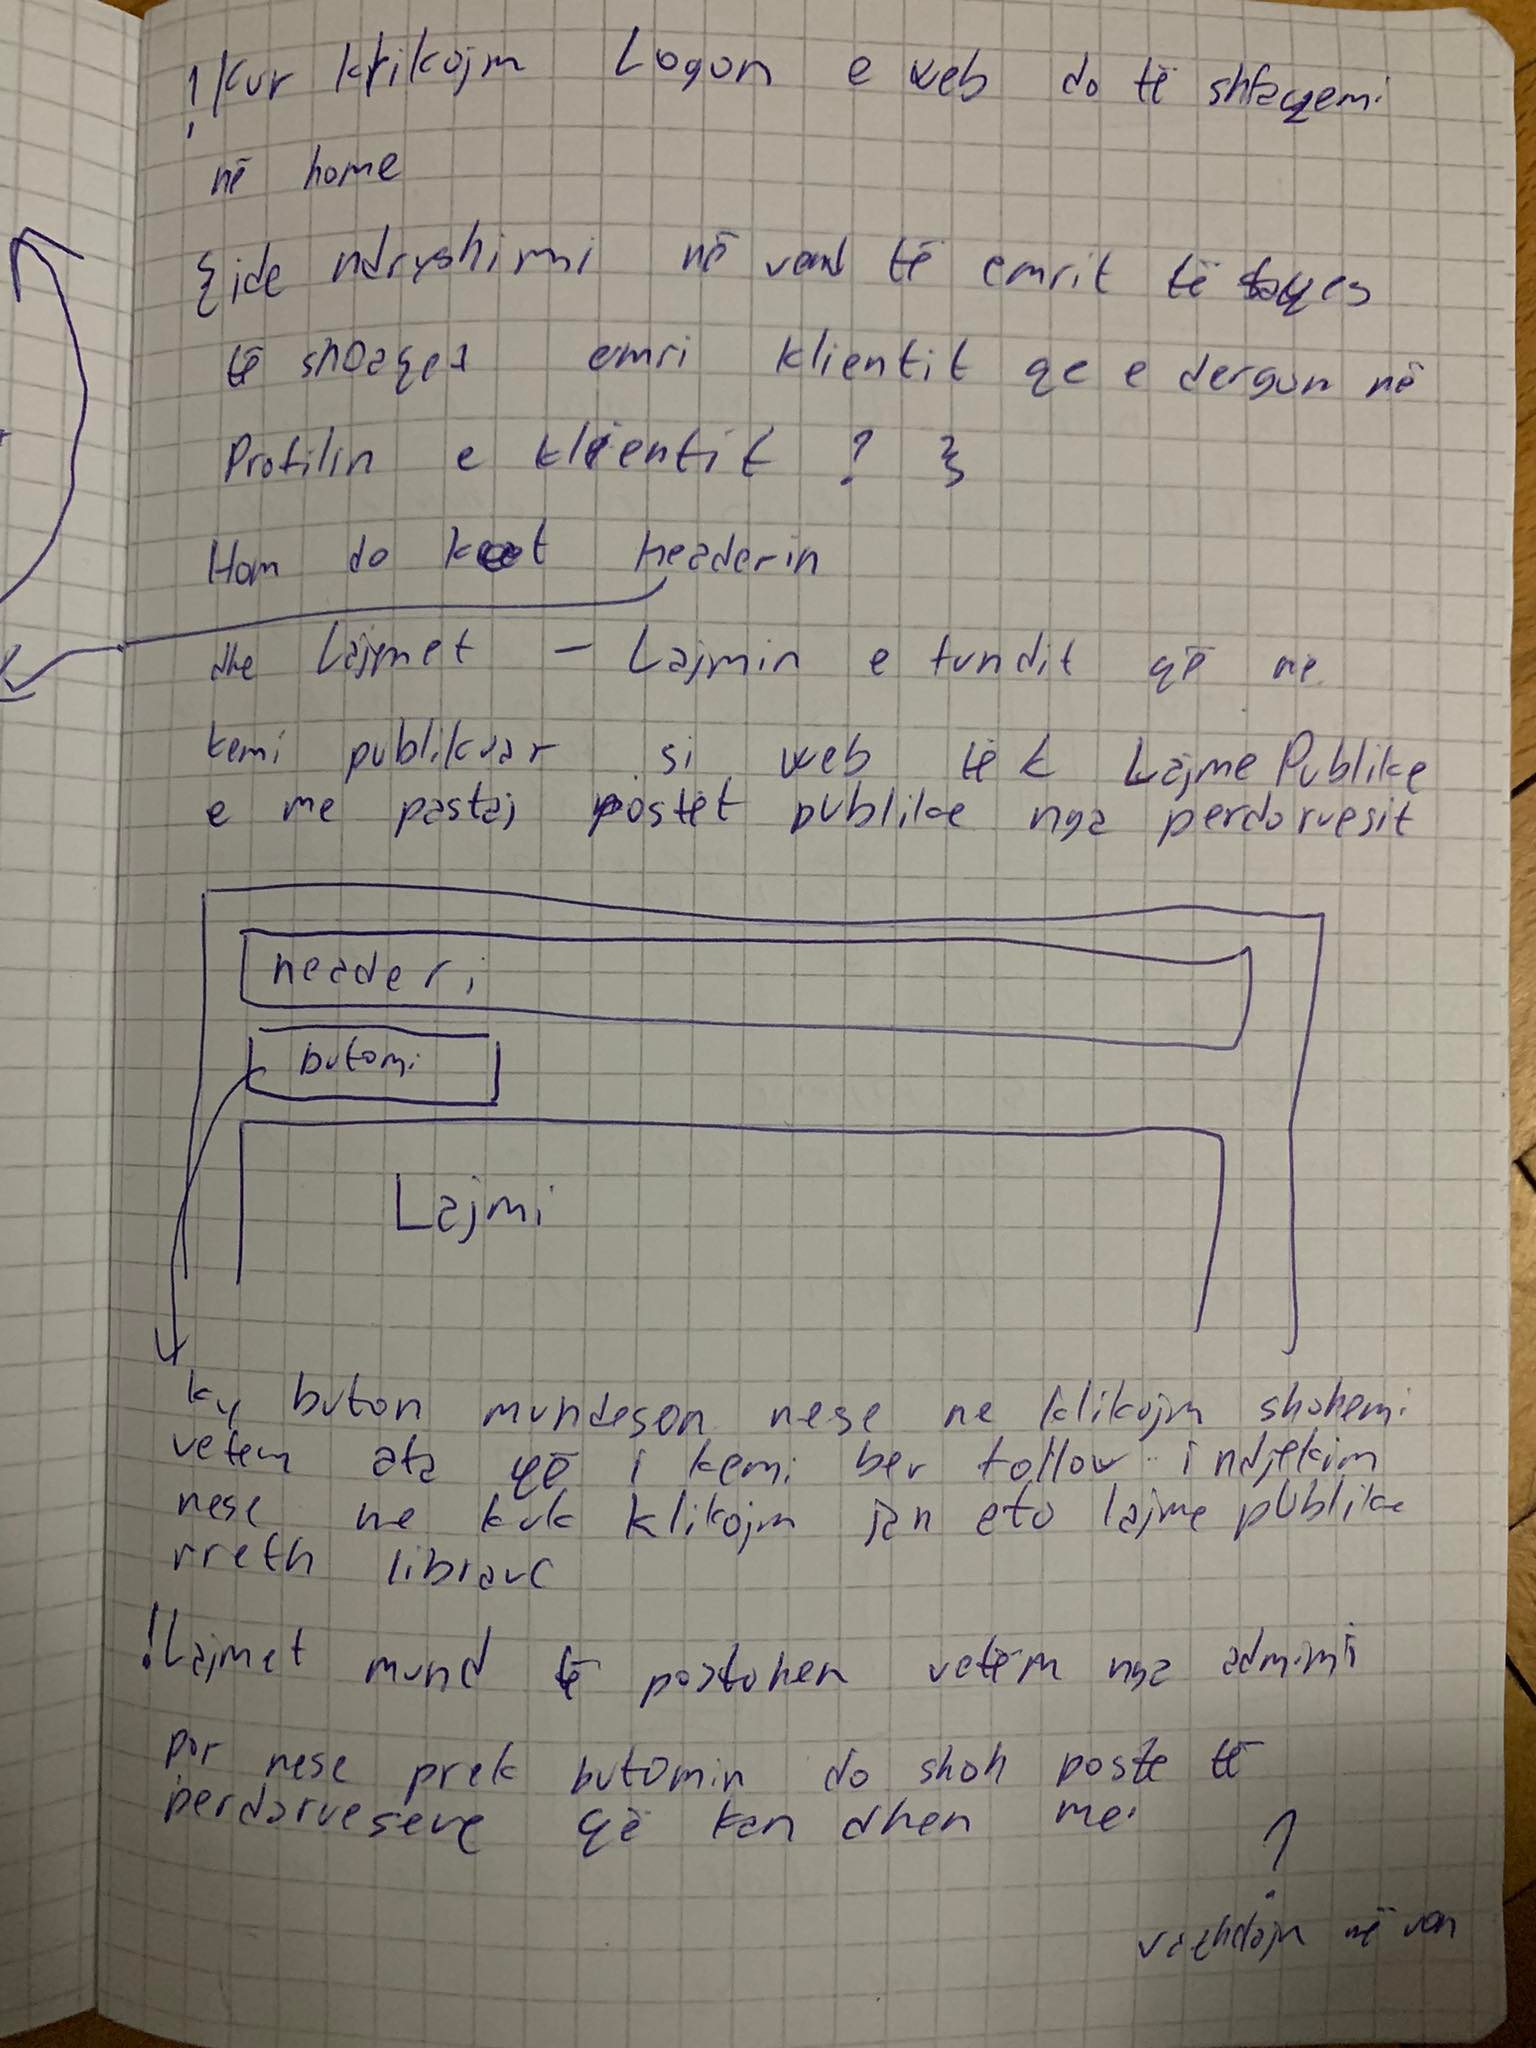 ! Kur klikojm Logon e web do të shfaqemi
në home
{ ide ndryshimi në vend të emrit të faqes
të shfaqet emri klientit qe e dergon në
Profilin e klientit ? }
Hom do ket headerin
dhe Lajmet - Lajmin e fundit që ne
kemi publikuar si web tëk Lajme Publike
e me pastaj postët publike nga perdoruesit
headeri
butoni
Lajmi
ky buton mundeson nese ne klikojm shohemi
vetem ata që i kemi ber follow indjekim
nese ne kuk klikojm jan eto lajme publike
rreth librave
! Lajmet mund të postohen vetëm nga admini
por nese prek butonin do shoh poste të
perdorueseve që kan dhen me
?
vazhdojm më von